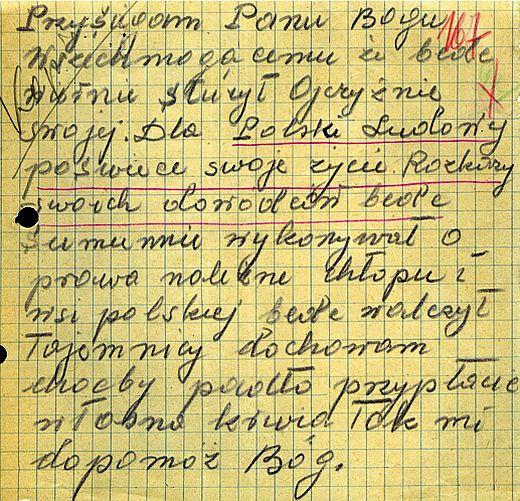 Przyśiągam Panu Bogu 167
wszechmogącemu że bede
wiernie słurzył Ojczyźnie
swojej. Dla Polski Ludowy
poswiece swoje życie. Rozkazy
swoich dowodców bede
sumunnie wykonywał o
prawa należne chłopu i
wsi polskiej bede walczył
Tajemnicy dochowam
choćby padło przypłacic
własna krwia Tak mi
dopomóż Bóg.